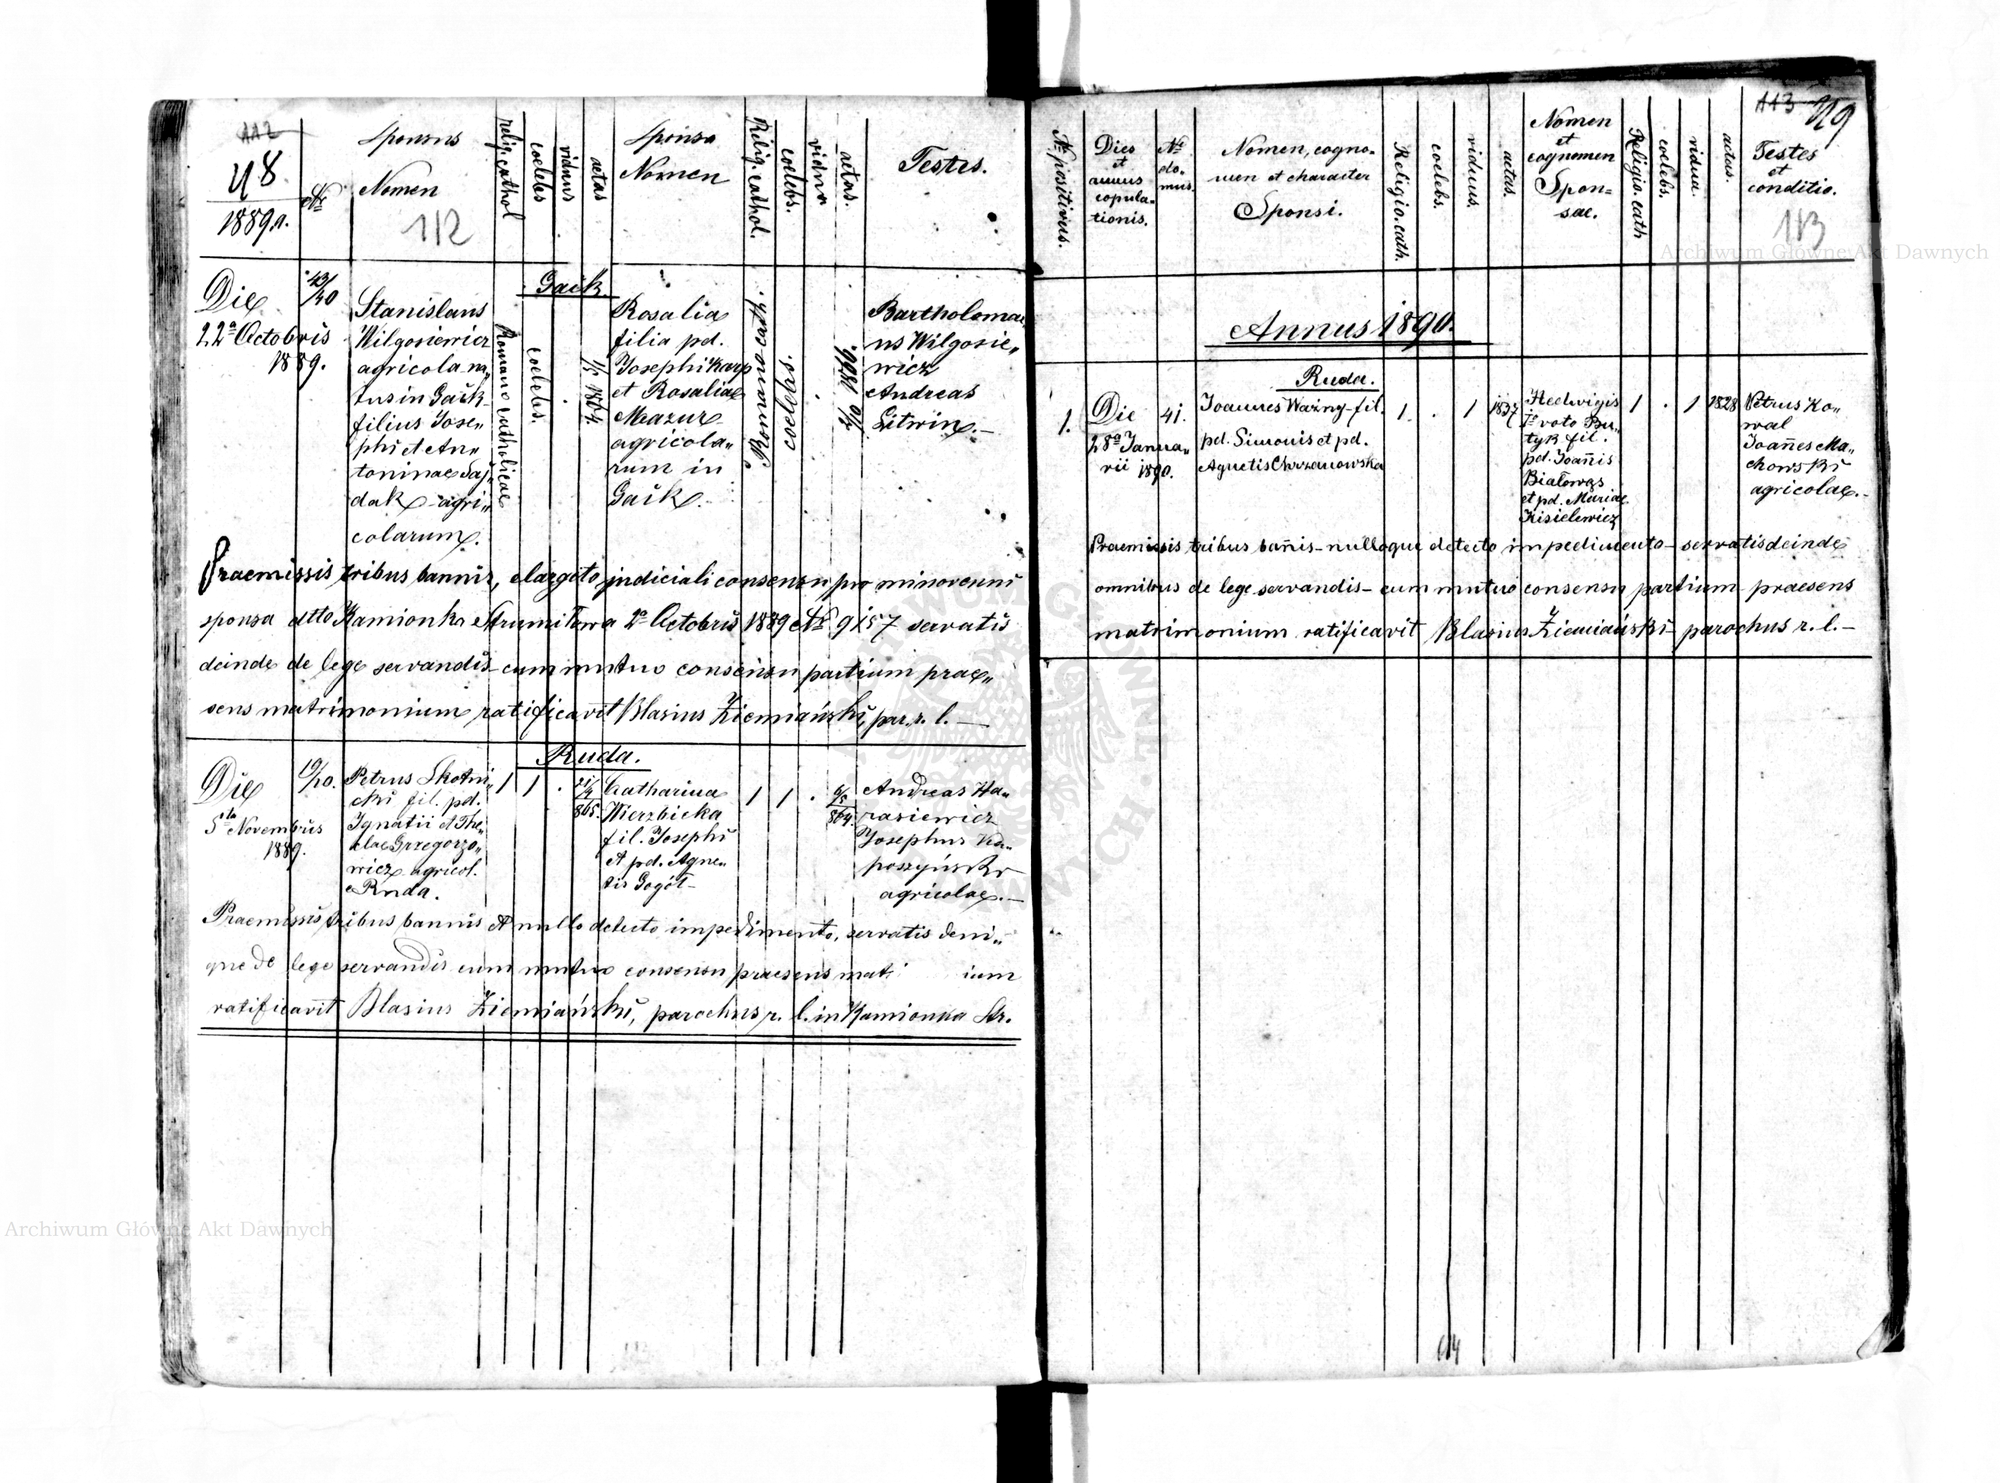 112
48
1889 a.
Nr
Sponsus
Nomen
112
relig. cathol
coelebs
viduus
aetas
Sponsa
Nomen
Relig. cathol.
coelebs.
vidua
aetas.
Testes.
Gaik
Die
22a Octobris
1889.
43/40
Stanislaus
Wilgosiewicz
agricola na„
tus in Gaik
filius Jose„
phi et An„
toninae Saj„
dak - agri„
colarum.
Romano catholicae
coelebs.
1/5 1864
Rosalia
filia pd.
Josephi Karp
et Rosaliae
Mazur
agricola„
rum in
Gaik.
Romano cath.
coelebs.
4/10 1866.
Bartholomae
us Wilgosie„
wicz
Andreas
Litwin. -
Praemissis tribus bannis, elargito judiciali consensu pro minorenni
sponsa dtto Kamionka Strumiłowa 2a Octobris 1889 Nr 9157 servatis
deinde de lege servandis - cum mutuo consensu partium prae„
sens matrimonium ratificavit Blasius Ziemiański, par. r. l. -
Ruda.
Die
5ta Novembris
1889.
19/20.
Petrus Skotni„
cki fil. pd.
Ignatii et The„
clae Grzegorzo„
wicz agricol.
e Ruda.
1
1
.
21/4
865.
Catharina
Wierzbicka
fil. Josephi
et pd. Agne„
tis Gogół -
1
1
.
9/5
864.
Andreas Ha„
rasiewicz
Josephus Ka„
poszyński
agricolae. -
Praemissis tribus bannis et nullo detecto impedimento, servatis deni„
que de lege servandis cum mutuo consensu praesens mat ium
ratificavit Blasius Ziemiański, parochus r. l. in Kamionka Str.
113
49
Nr positivus.
Dies
et
annus
copula-
tionis.
Nr
do-
mus.
Nomen, cogno-
men et character
Sponsi.
Religio. cath.
coelebs.
viduus.
aetas.
Nomen
et
cognomen
Spon=
sae.
Religio. cath
coelebs.
vidua.
aetas.
Testes
et
conditio.
113
Annus 1890.
Ruda.
1.
Die
28a Janua„
rii 1890.
41.
Joannes Ważny fil.
pd. Simonis et pd.
Agnetis Chrzanowska
1
.
1
1837
Hedwigis
1o voto Bu„
tyk fil.
pd. Joañis
Białowąs
et pd. Mariae
Kisielewicz
1
.
1
1828
Petrus Ko„
wal
Joañes Ma„
chowski
agricolae. -
Praemissis tribus bañis - nulloque detecto impedimento - servatis deinde
omnibus de lege servandis - cum mutuo consensu partium praesens
matrimonium ratificavit Blasius Ziemiański parochus r. l. -
114
Archiwum Główne Akt Dawnych
Archiwum Główne Akt Dawnych